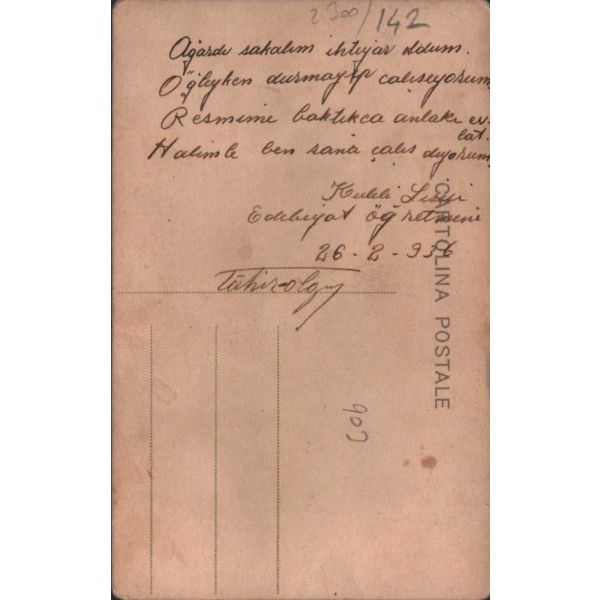 2300/142
Ağardı sakalım ihtiyar oldum.
Öğleyken durmayıp çalışıyorum
Resmime baktıkca anlaki ev-
lat.
Halimle ben sana çalış diyorum
Kuleli Lisesi
Edebiyat öğretmeni
26-2-936
Tâhir-olgun
CARTOLINA POSTALE
903